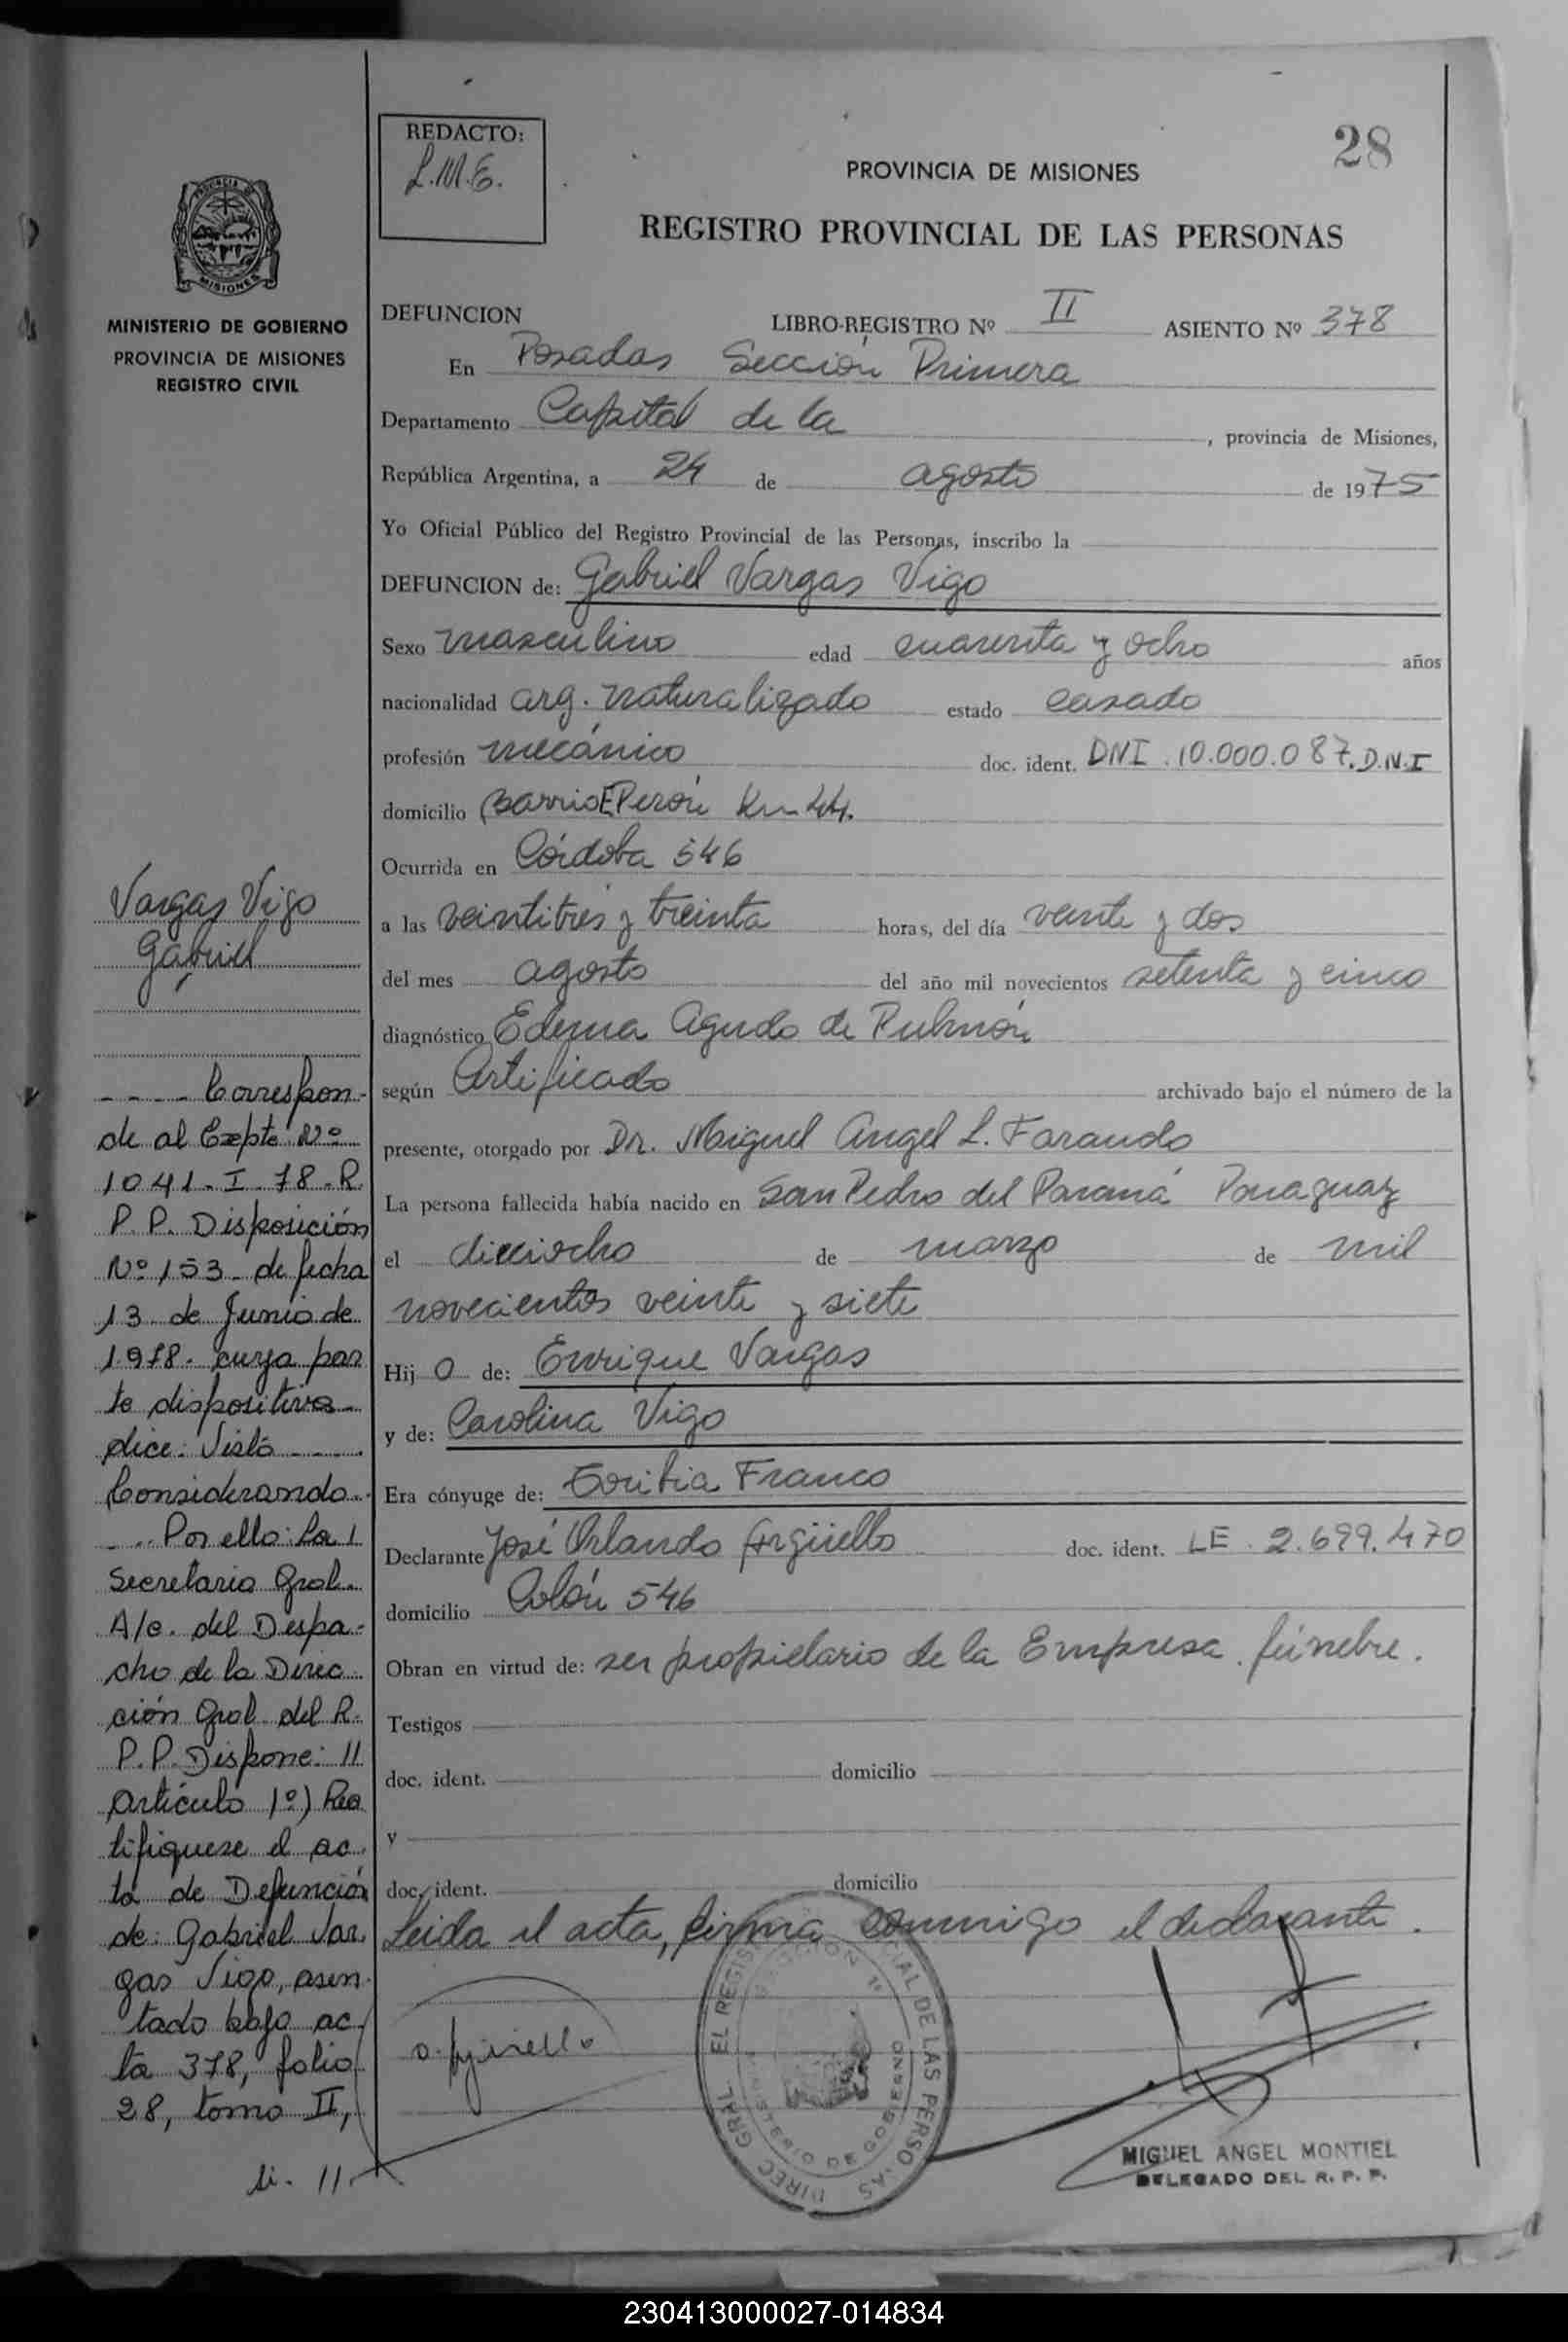 28
REDACTO:
L.M.E.
PROVINCIA DE MISIONES
REGISTRO PROVINCIAL DE LAS PERSONAS
PROVINCIA DE
MISIONES
MINISTERIO DE GOBIERNO
PROVINCIA DE MISIONES
REGISTRO CIVIL
DEFUNCION LIBRO-REGISTRO Nº II ASIENTO Nº 378
En Posadas Sección Primera
Departamento Capital de la , provincia de Misiones,
República Argentina, a 24 de agosto de 1975
Yo Oficial Público del Registro Provincial de las Personas, inscribo la
DEFUNCION de: Gabriel Vargas Vigo
Sexo masculino edad cuarenta y ocho años
nacionalidad arg. naturalizado estado casado
profesión mecánico doc. ident. DNI. 10.000.087. D.N.I
domicilio Barrio E Perón Km 44.
Ocurrida en Córdoba 546
a las veintitres y treinta horas, del día veinte y dos
del mes agosto del año mil novecientos setenta y cinco
diagnóstico Edema Agudo de Pulmón
según Certificado archivado bajo el número de la
presente, otorgado por Dr. Miguel Angel L. Farando
La persona fallecida había nacido en San Pedro del Paraná Paraguay
el dieciocho de marzo de mil
novecientos veinte y siete
Hij o de: Enrique Vargas
y de: Carolina Vigo
Era cónyuge de: Franco
Declarante José Orlando Argüello doc. ident. LE. 2.699.470
domicilio Colón 546
Obran en virtud de: ser propietario de la Empresa fúnebre.
Testigos
doc. ident. domicilio
y
doc. ident. domicilio
Leida el acta, firma conmigo el declarante.
O. Argüello
DIREC. GRAL. EL REGIS CIAL DE LAS PERSONAS
SECCION 1ª
MINISTERIO DE GOBIERNO
MIGUEL ANGEL MONTIEL
DELEGADO DEL R. P. P.
Vargas Vigo
Gabriel
---- Correspon-
de al Expte Nº
1041-I-78-R.
P.P. Disposición
Nº 153 de fecha
13 de Junio de
1978. cuya par
te dispositiva
dice: Visto ---
Considerando.
... Por ello: La
Secretaria Gral.
A/c. del Despa-
cho de la Direc
ción Gral. del R.
P.P. Dispone: //
Artículo 1º) Rec
tifiquese el ac
ta de Defunción
de: Gabriel Var
gas Vigo, asen
tado bajo ac
ta 378, folio
28, tomo II,
//
230413000027-014834